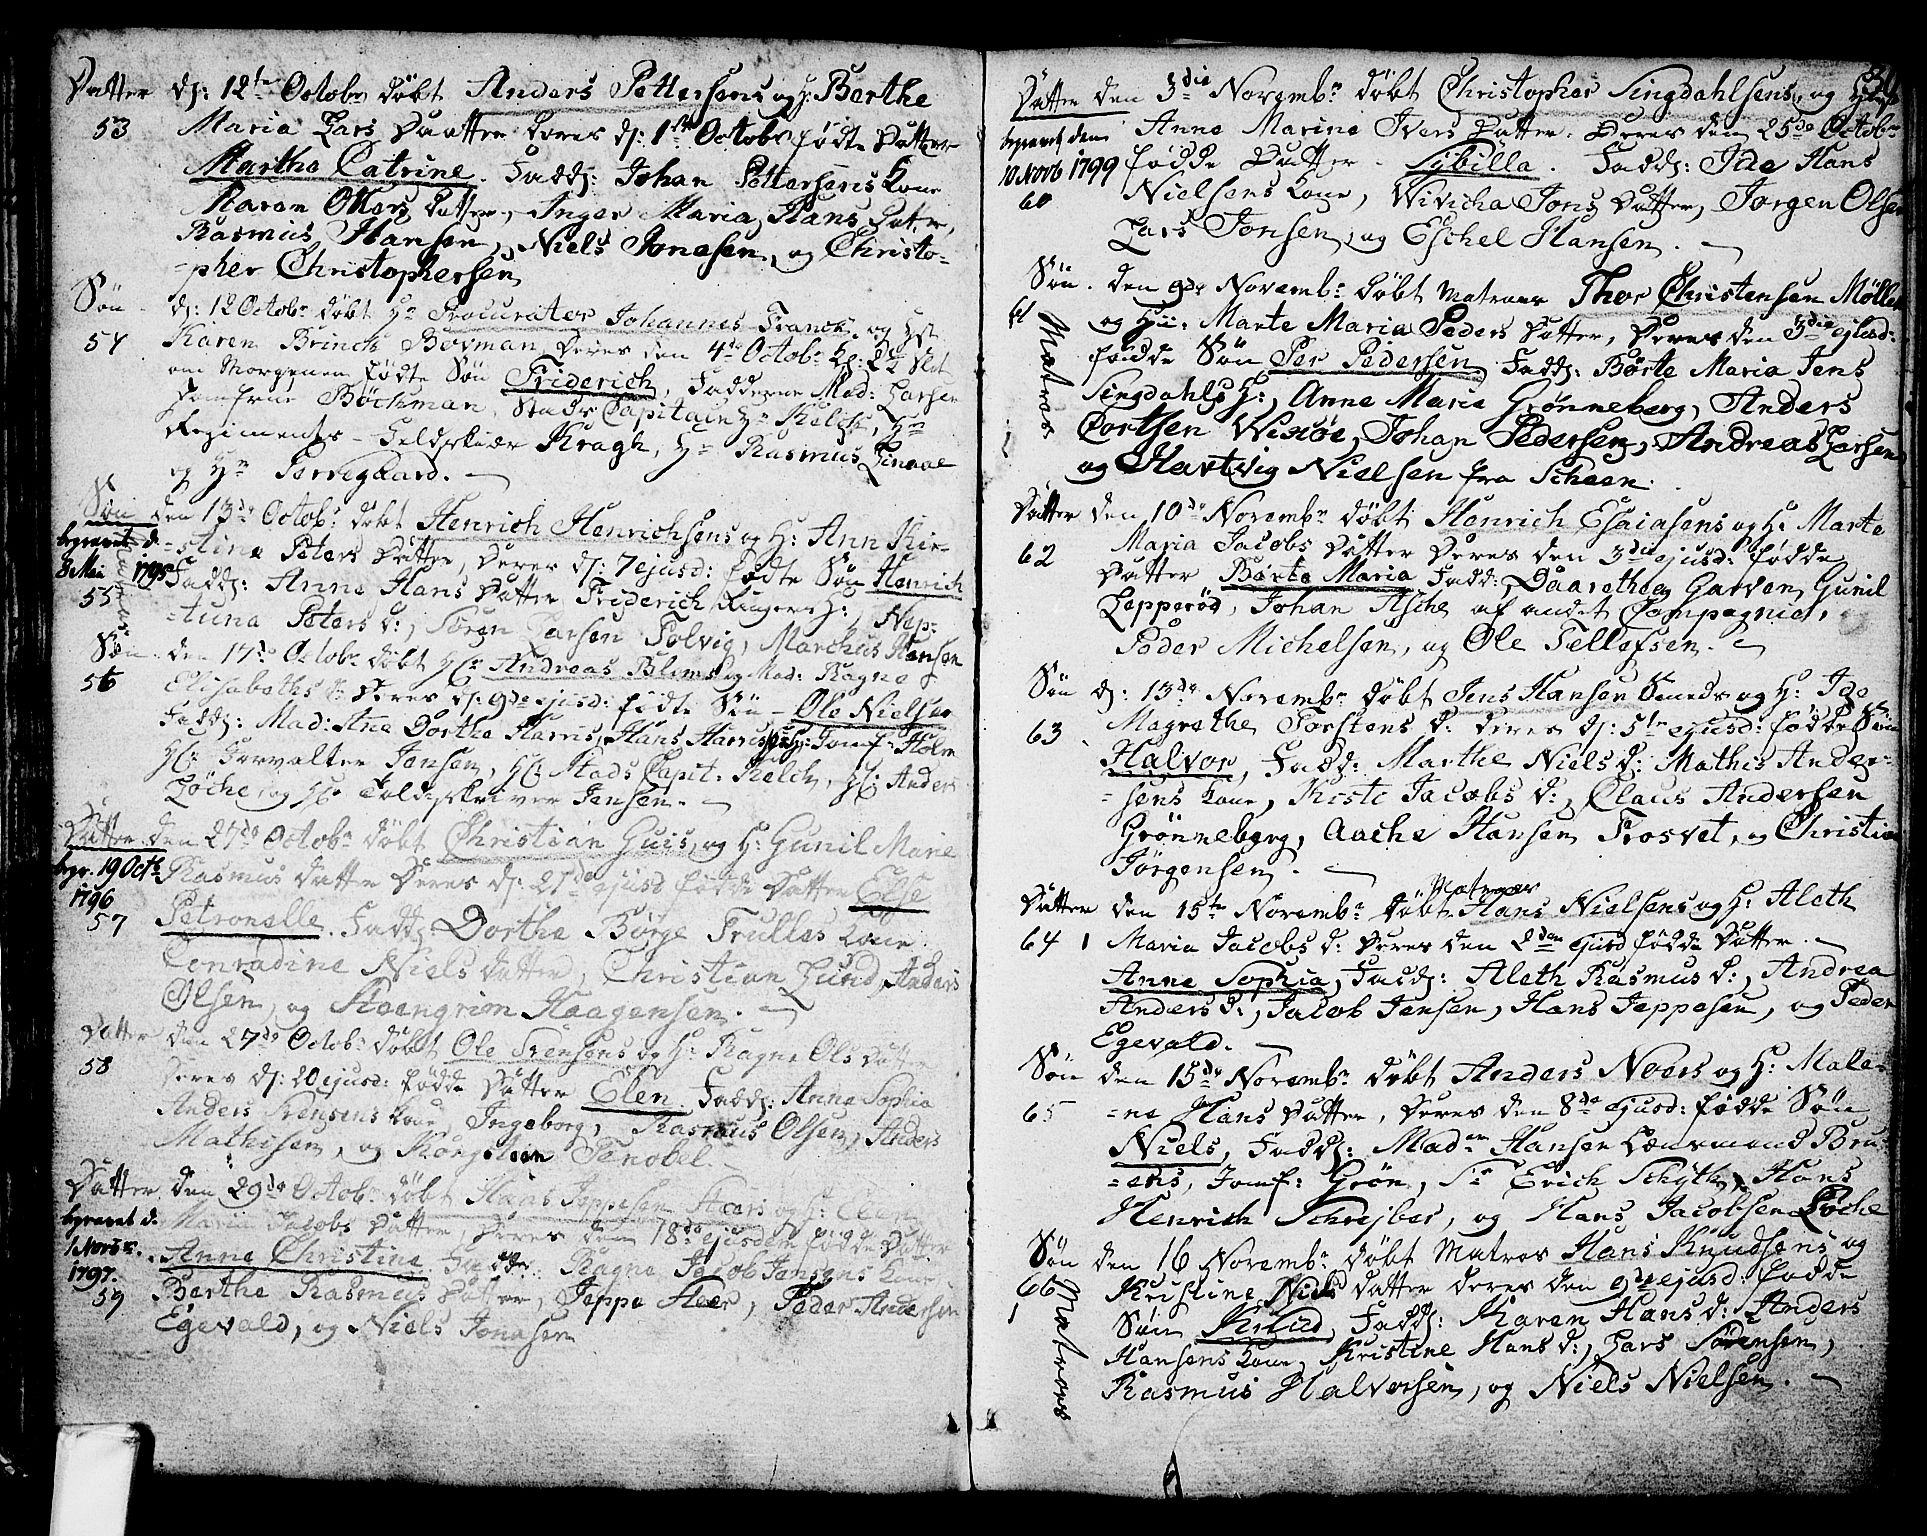 Datter d: 12te Octobr døbt Anders Pettersens og H: Berthe
53 Maria Lars Daatter Deres d: 1ste Octobr fødte Datter
Martha Catrine. Fadd: Johan Pettersens Kone
Maren Olters Datter, Inger Maria Hans Datter,
Rasmus Hansen, Niels Jonasen, og Christo-
-pher Christophersen
Søn d: 12 Octobr døbt Hr Procurator Johannes Franck, og Hst
54 Karen Brinch Borman Deres den 4de Octobr Kl: 2½ Slet
om Morgenen fødte Søn Friderich, Fadderne Mad: Larsen
Jomfrue Böchman, Stads Capitain Hr Kelch, Hr
Regiments-Feldskiær Kragh, Hr Rasmus Linaae
og Hr Torregaard.
Søn den 13de Octobr døbt Henrich Henrichsens og H: Ann Kir-
begravet d. -stine Peters Datter, Deres d: 7 ejusd: fødte Søn Henrich
8 Mai 1795 Fadd: Anne Hans Datter Friderich Rugers H:, Nep-
55 -tuna Peters d:, Søren Larsen Solvig, Marchus Hansen
Søn den 17de Octobr døbt Hr: Andreas Bloms og Mad: Ragne
56 Elisabeths d: Deres d: 9de ejusd: fødte Søn - Ole Nielsen
Fadd: Mad: Ane Dorthe Harris, Hans Harris H: Jomf: Holm
Hr: Forvalter Jensen, Hr: Stads Capit: Kelch, Hr: Anders
Løche, og Hr Toldskriver Jensen.
Datter den 27de Octobr døbt Christian Guis, og H: Gunil Marie
begr. 19 Octb. Rasmus Datter Deres d: 21de ejusd fødde Datter Else
1796
57 Petronelle. Fadd: Dorthe Børge Trulles Kone
Conradine Niels Datter, Christian Lund, Anders
Olsen, og Steengrim Haagensen.
Datter den 27de Octobr døbt Ole Svensens og H: Ragne Ols Datter
58 Deres d: 20 ejusd: fødde Datter Elen. Fadd: Anne Sophia
Anders Svensens Kone, Ingeborg, Rasmus Olsen, Anders
Mathisen, og Torsten Tenobel.
Datter den 29de Octobr døbt Hans Jeppesen Heers og H: Elen
begravet d. Maria Jacobs Datter, Deres den 18de ejusdem fødde Datter
1 Novbr. Anne Christine. Fadde: Ragne Jacob Jansens Kone
1797.
59 Berthe Rasmus Datter, Jeppe Heer, Peder Andersen
Egevald, og Niels Jonasen
Datter den 3die Novembr døbt Christopher Singdahlsens, og H:
begravet den Anne Marine Ivers Datter. Deres den 25de Octobr
10 Novb 1799 fødde Datter - Sybilla. Fadd: Ide Hans
60 Nielsens Kone, Wivicha Jons Datter, Jørgen Olsen
Lars Jonsen, og Eschel Hansen.
Søn den 9de Novembr døbt Matroes Thor Christensen Møller
61 Matros og Hu: Marte Maria Peders Datter, Deres den 3die ejusd:
fødde Søn Per Pedersen. Fadd: Børte Maria Jens
Singdahls H:, Anne Marie Grønneberg, Anders
Cortsen Wexöe, Johan Pedersen, Andreas Larsen
og Hartvig Nielsen fra Scheen.
Datter den 10de Novembr døbt Henrich Esaiasens og H: Marte
62 Maria Jacobs Datter Deres den 3die ejusd: fødde
Datter Børte Maria Fadd: Daarethea Garven, Gunil
Lepperöd, Johan Asche af andet Compagnie,
Peder Michelsen, og Ole Tellefsen.
Søn d: 13de Novembr døbt Jens Hansen Smeds og H: Ide
63 Magrethe Torstens d: deres d: 5te ejusd: fødde Søn
Halvor, Fadd: Marthe Niels d: Mathis Ander-
-sens Kone, Kirsti Jacobs d:, Claus Andersen
Grønneberg, Aache Hansen Trosvet, og Christian
Jörgensen.
Datter den 15te Novembr døbt Matroes Hans Nielsens og H: Aleth
64 1 Maria Jacobs d: Deres den 2den ejusd fødde Datter
Anne Sophia, Fadd: Aleth Rasmus d:, Andrea
Anders d:, Jacob Jensen, Hans Jeppesen, og Peder
Egevald.
Søn den 15de Novembr døbt Anders Noers og H: Male-
65 -ne Hans Datter, Deres den 8de ejusd: fødde Søn
Niels, Fadd: Madm Hansen Lænsmand Bru-
-ens, Jomf: Grön, Sr Erich Schÿth, Hans
Henrich Schrejber, og Hans Jacobsen Løche
Søn den 16 Novembr døbt Matros Hans Knudsens og
66 Matros Kirstine Niels Datter deres den 9de ejusd: fødde
1 Søn Knud, Fadd: Karen Hans d: Anders
Hansens Kone, Kristine Hans d:, Lars Sørensen,
Rasmus Halvorsen, og Niels Nielsen.